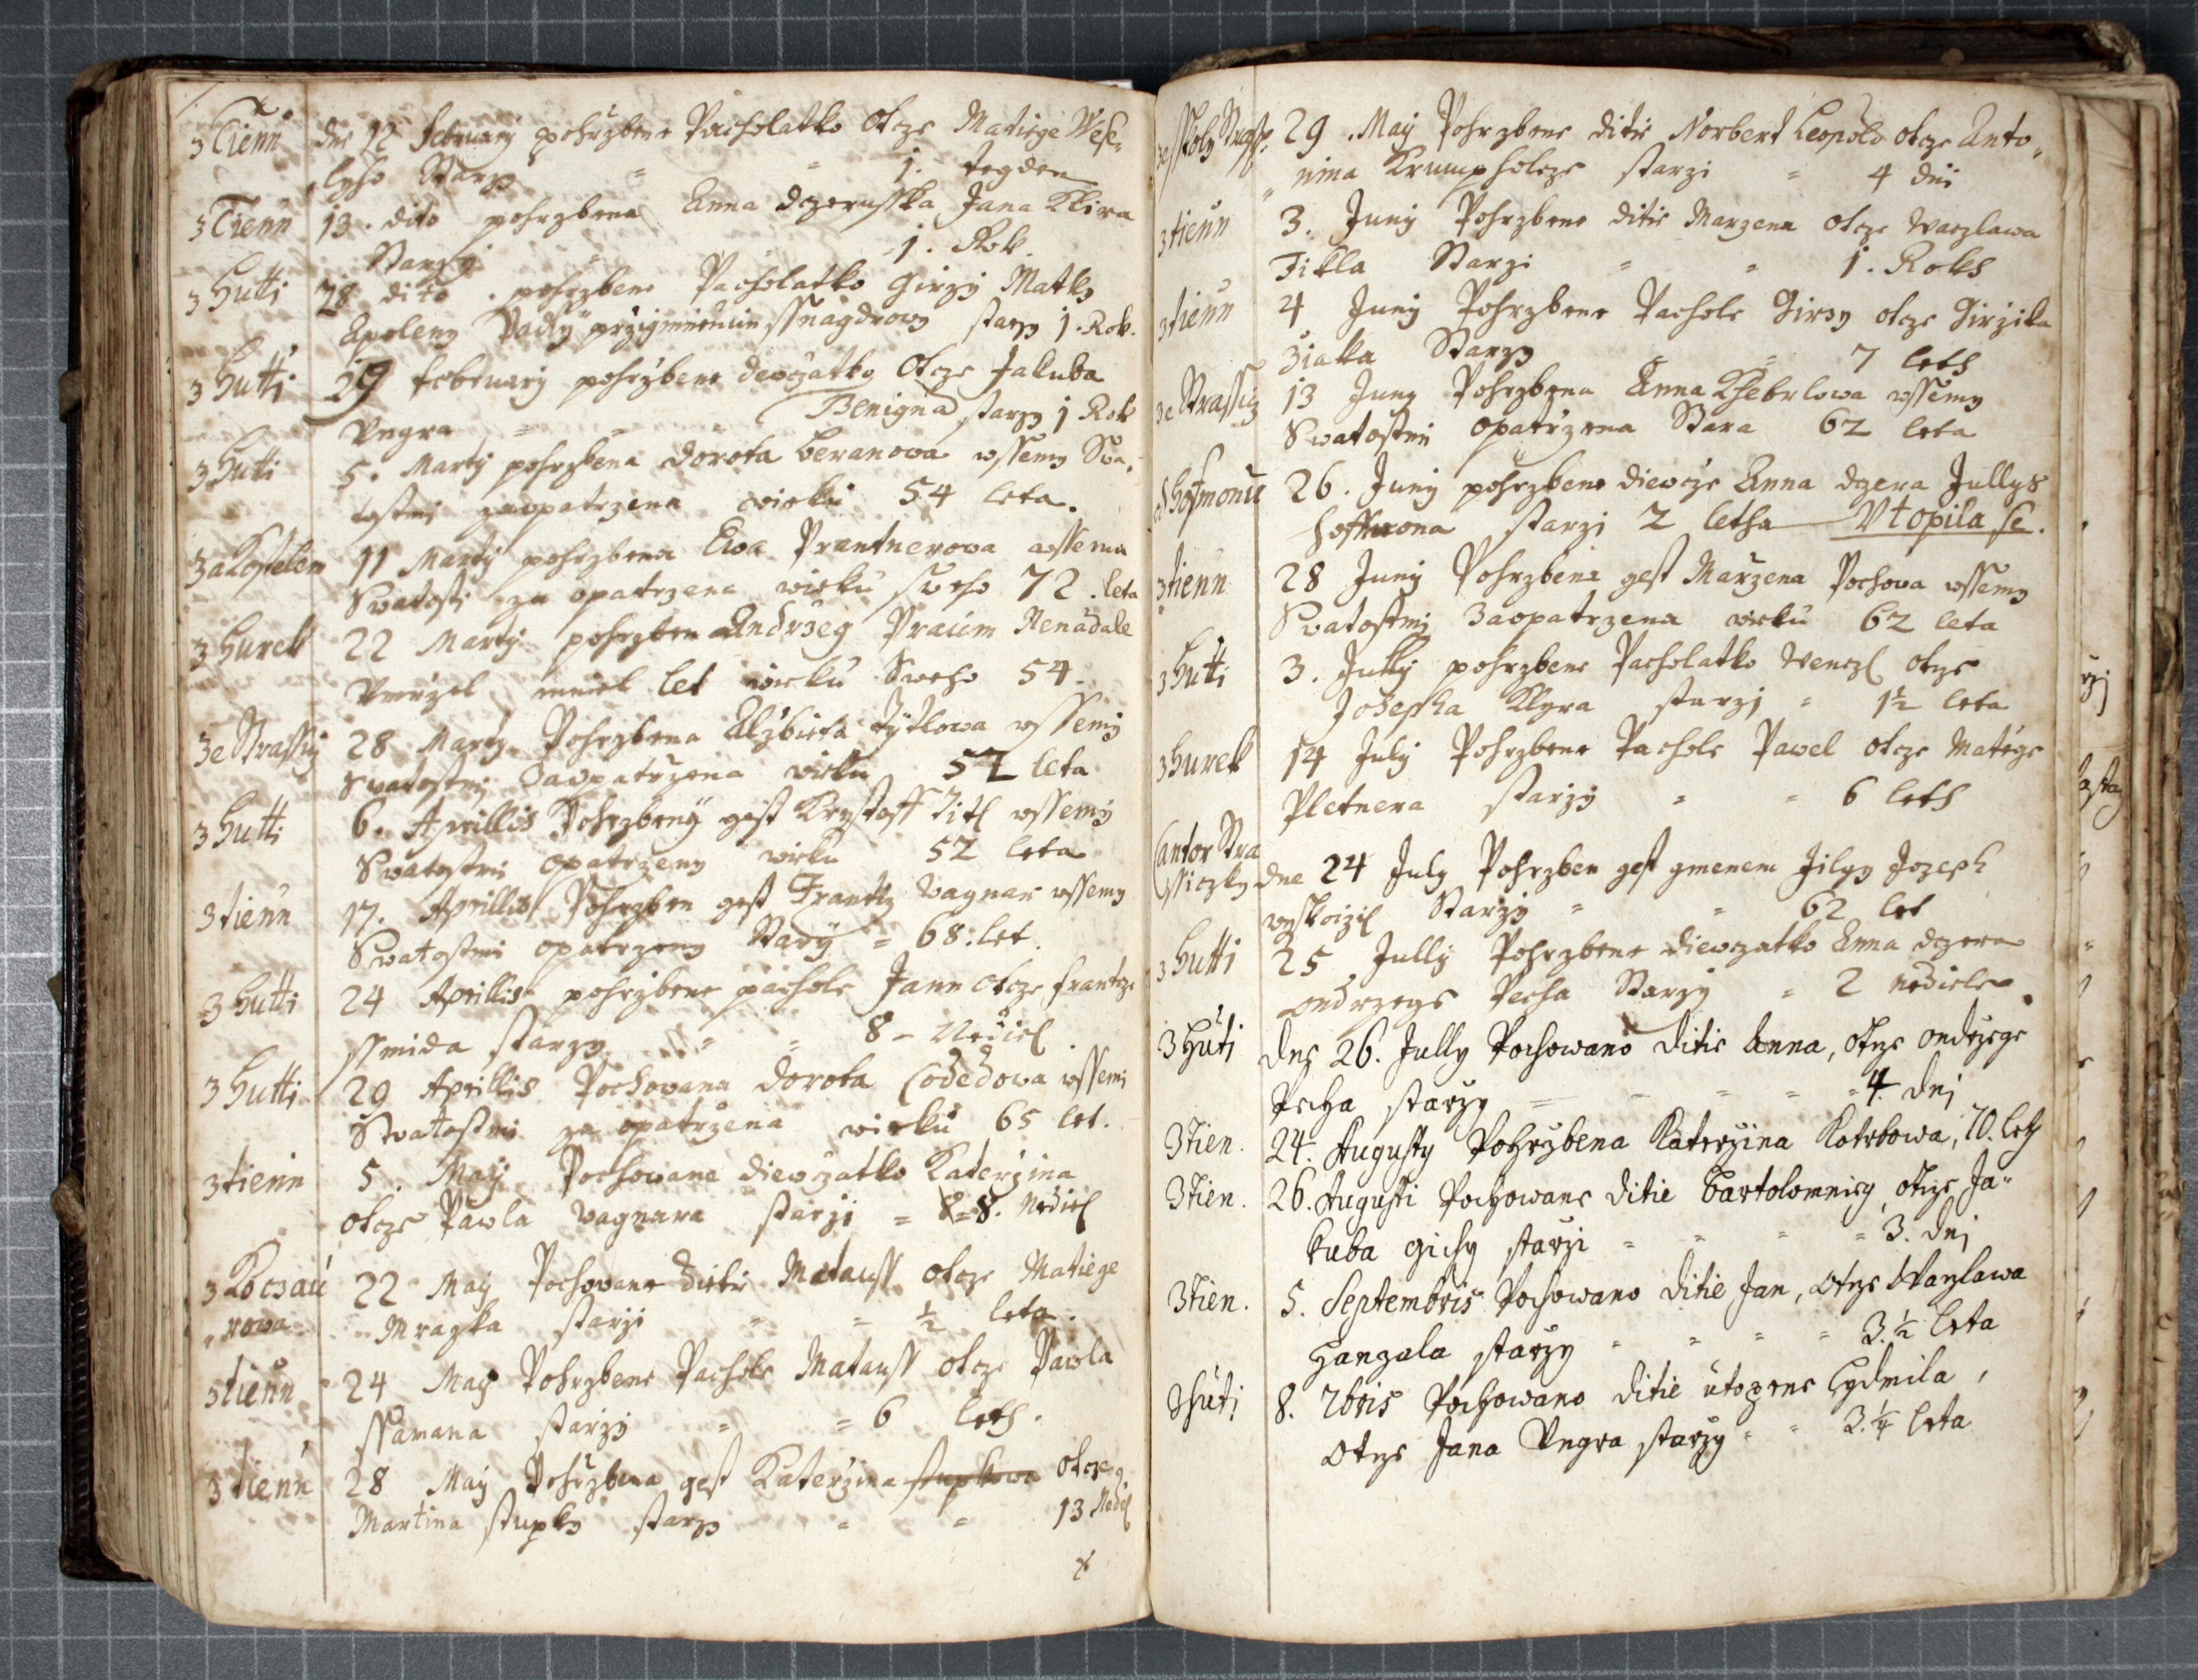 3 Tienn dne 12 February pohrzbene Pacholatko Otcze Matiege Wese„
lyho Starzy = = 1. tegden
3 Tienn 13. dito pohrzbena Anna dczeruſſka Jana Klira
Starzy - 1. Rok.
3 Hutti 28 dito . pohrzbene Pacholatko Girzy Matky
Apoleny starzy 1. Rok.
3 Hutti 29 february pohrzbene dewczatko Otcze Jakuba
Vngra = = Benigna starzy 1 Rok
3 Hutti 5. Marty pohrzbena Dorota Beranowa wssemy Swa„
tostmi zaopatrzena wieku 54 leta.
3a Kostelem 11 Marty pohrzbena Ewa Prantnerowa wssema
Swatosti za opatrzena wieku sweho 72. leta
3 Hurek 22 Marty pohrzben Andrzeg Praum Nenadale
Vmrzel miel let wieku Sweho 54.
3e Strassig 28 Marty Pohrzbena Alzbieta Tytlowa wssemy
Swatostmi Zaopatrzena wieku 52 leta
3 Hutti 6. Aprillis Pohrzbeny gest Krystoff Titl wssemy
Swatostmi opatrzeny wieku 52 leta
3 tienn 17. Aprillis Pohrzben gest Frantz Wagner wssemy
Swatostmi opatrzeny Stary = 68. let.
3 Hutti 24 Aprillis pohrzbene pachole Jann Otcze frantze
ssmida starzy = = 8 - Nediel.
3 Hutti 29 Aprillis Pochowana Dorota Codedowa wssemi
Swatostmi za opatrzena wieku 65 let.
3 tienn 5. May Pochowane diewczatko Katerzina
otcze Pawla Wagnera starzi = 8. Nediel
3 Koczau 22 May Pochowane dietie Matauss otcze Matiege
„rowa Mrazka starzi = = ½ leta.
3 tienn 24 May Pohrzbene Pachole Matauss otcze Pawla
ssamana starzy = = 6 leth.
3 tienn 28 May Pohrzbena gest Katerzina stupkowa otcze
Martina stupky starzy = = 13 Nediel
29. May Pohrzbene ditie Norbert Leopold otcze Anto„
„nina Krumpholcze starzi = 4 dni
3 tienn 3. Juny Pohrzbene ditie Marzena otcze Waczlawa
Fikla Starzi = = 1. Roku
3 tienn 4 Juny Pohrzbene Pachole Girzy otcze Girzika
Ziaka Starzy = 7 leth
3e Strassig 13 Juny Pohrzbena Anna Kheberlowa wssemy
Swatostmi opatrzena Stara 62 leta
26. Juny pohrzbene diewcze Anna dczera Jullyus
Hoffmona starzi 2 letha Vtopila se.
3 tienn 28 Juny Pohrzbena gest Marzena Pochowa wssemy
Swatostmi Zaopatrzena wieku 62 leta
3 Huti 3. July pohrzbene Pacholatko Wenczl otcze
Jozepha Klyra starzi = 1½ leta
3 Hurek 14 July Pohrzbene Pachole Pawel otcze Matege
Pletnera starzy = = 6 leth
Cantor Stra
ssiczky dne 24 July Pohrzben gest gmenem Jilgy Jozeph
Starzy = = 62 let
3 Hutti 25 Jully Pohrzbene diewczatko Anna dczera
ondrzege Pecha Starzy = 2 nediele.
3 Huti dne 26. Jully Pochowano ditie Anna, otcze ondrzege
Pecha starzy = = = = 4. dni
3 tien. 24. Augusty Pohrzbena Katerzina Kotrbowa, 70. leth
3 tien. 26. Augusti Pochowane ditie Bartolomnieg, otcze Ja„
kuba gichy starzi = = = = 3. dni
3 tien. 5. Septembris Pochowano ditie Jan, otcze Waczlawa
Hanzala starzy = = = = 3.½ leta
3 Huti 8. 7bris Pochowano ditie utopene Lydmila,
otcze Jana Vngra starzy = = 3.¼ leta